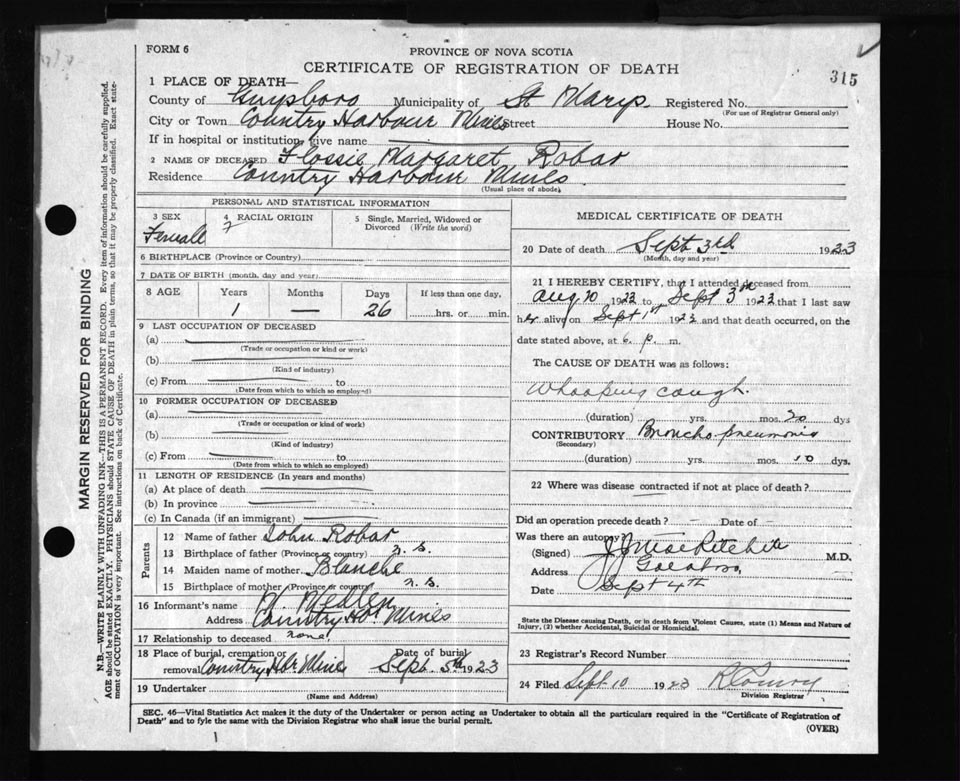 FORM 6
PROVINCE OF NOVA SCOTIA
CERTIFICATE OF REGISTRATION OF DEATH
315
1 PLACE OF DEATH—
County of Guysboro Municipality of St Marys. Registered No.
(For use of Registrar General only)
City or Town Country Harbour Mines Street House No.
If in hospital or institution, give name
2 NAME OF DECEASED Flossie Margaret Robar
Residence Country Harbour Mines
(Usual place of abode)
PERSONAL AND STATISTICAL INFORMATION
3 SEX Female
4 RACIAL ORIGIN
5 Single, Married, Widowed or Divorced (Write the word)
6 BIRTHPLACE (Province or Country)
7 DATE OF BIRTH (month, day and year)
8 AGE Years Months Days If less than one day,
1 — 26 hrs. or min.
9 LAST OCCUPATION OF DECEASED
(a)
(Trade or occupation or kind or work)
(b)
(Kind of industry)
(c) From to
(Date from which to which so employed)
10 FORMER OCCUPATION OF DECEASED
(a)
(Trade or occupation or kind of work)
(b)
(Kind of industry)
(c) From to
(Date from which to which so employed)
11 LENGTH OF RESIDENCE (In years and months)
(a) At place of death
(b) In province
(c) In Canada (if an immigrant)
Parents
12 Name of father John Robar
13 Birthplace of father (Province or country) n. s.
14 Maiden name of mother Blanche
15 Birthplace of mother (Province or country) n. s.
16 Informant's name
Address Country Hbr Mines
17 Relationship to deceased none
18 Place of burial, cremation or removal Country Hbr Mines Date of burial Sept. 5th 1923
19 Undertaker
(Name and Address)
MEDICAL CERTIFICATE OF DEATH
20 Date of death Sept 3rd 1923
(Month, day and year)
21 I HEREBY CERTIFY, that I attended deceased from
Aug 20 1923 to Sept 3rd 1923 that I last saw
her alive on Sept 1st 1923 and that death occurred, on the
date stated above, at 6 p. m.
The CAUSE OF DEATH was as follows:
Whooping cough.
(duration) yrs. mos. 20 dys
CONTRIBUTORY Broncho pneumonia
(Secondary)
(duration) yrs. mos. 10 dys.
22 Where was disease contracted if not at place of death?
Did an operation precede death? — Date of —
Was there an autopsy
(Signed) J J MacRitchie M.D.
Address Goldboro
Date Sept 4th
State the Disease causing Death, or in death from Violent Causes, state (1) Means and Nature of
Injury, (2) whether Accidental, Suicidal or Homicidal.
23 Registrar's Record Number
24 Filed Sept 10 1923
Division Registrar
SEC. 46—Vital Statistics Act makes it the duty of the Undertaker or person acting as Undertaker to obtain all the particulars required in the "Certificate of Registration of
Death" and to fyle the same with the Division Registrar who shall issue the burial permit.
(OVER)
MARGIN RESERVED FOR BINDING
N.B.—WRITE PLAINLY WITH UNFADING INK—THIS IS A PERMANENT RECORD. Every item of information should be carefully supplied.
AGE should be stated EXACTLY. PHYSICIANS should STATE CAUSE OF DEATH in plain terms, so that it may be properly classified. Exact state-
ment of OCCUPATION is very important. See instructions on back of Certificate.